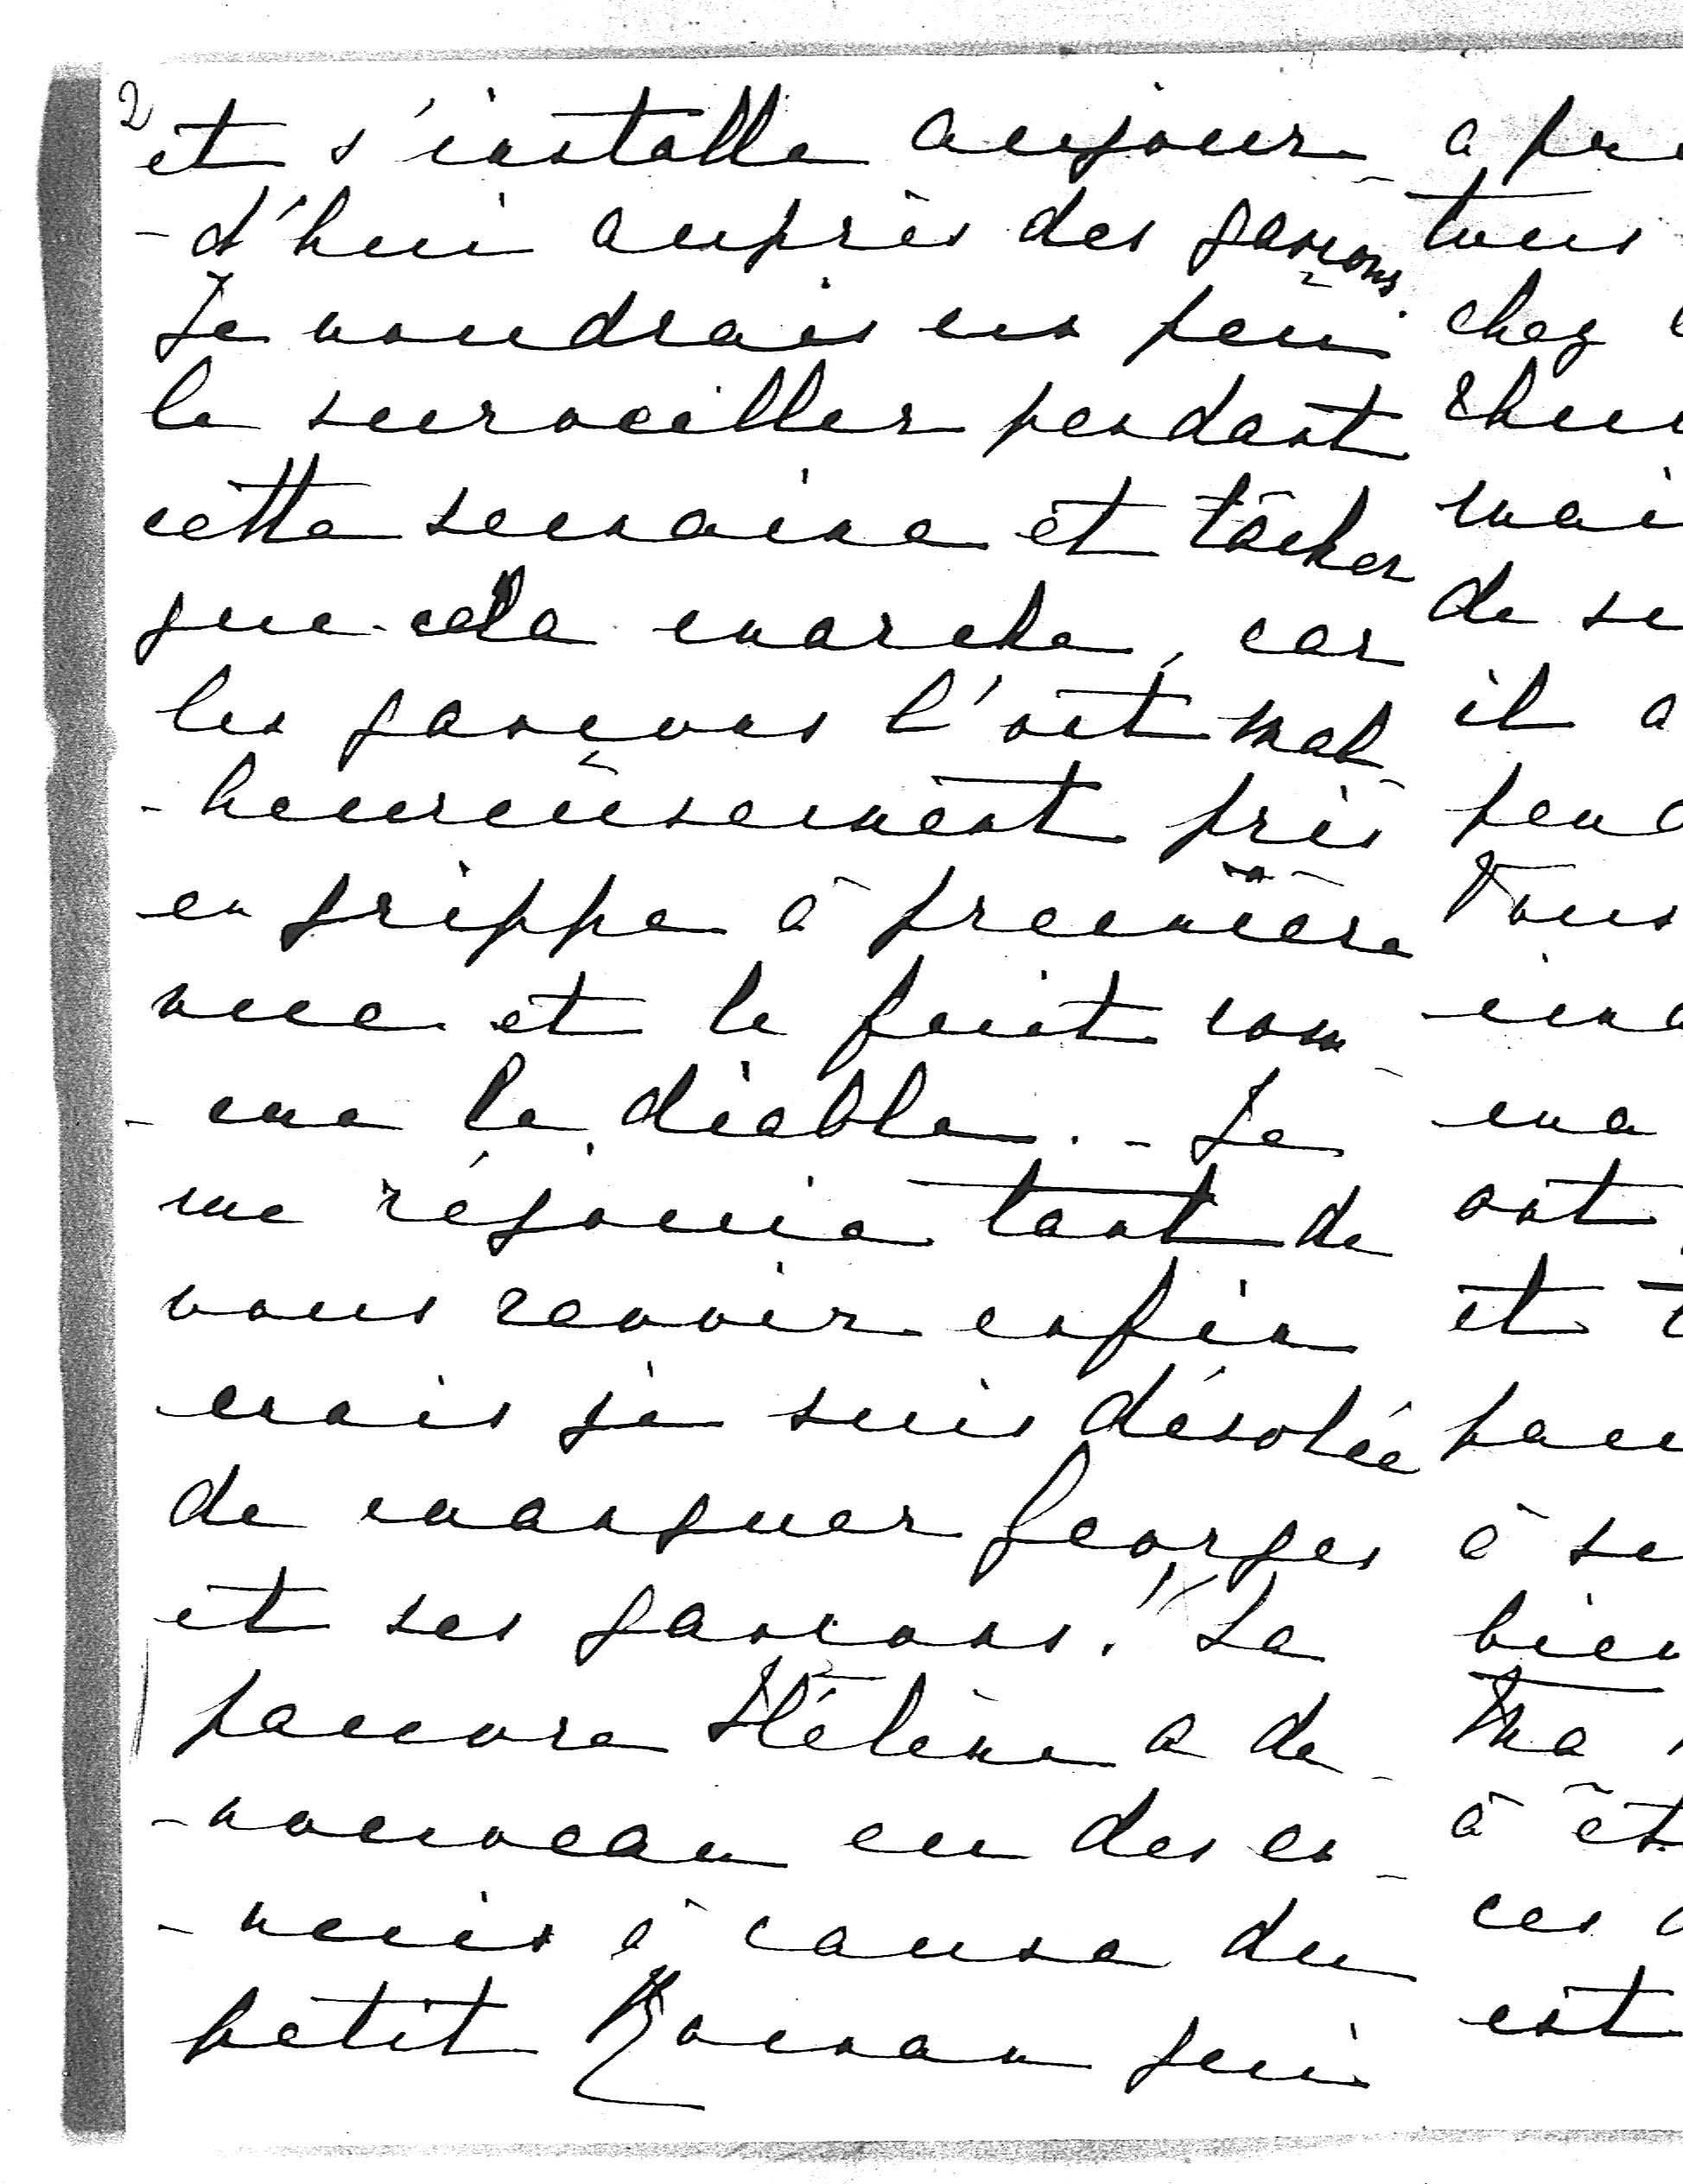 2
et s'installe aujour-
-d'hui auprès des garçons.
Je voudrais un peu
le surveiller pendant
cette semaine et tâcher
que cela marche, car
les garçons l'ont mal-
-heureusement pris
en grippe à première
vue et le fuit com-
-me le diable. - Je
me réjouis tant de
vous revoir enfin
mais je suis désolée
de manquer Georges
et ses garçons! La
pauvre Hélène a de-
-nouveau eu des en-
-nuis à cause du
petit Roman qui
a pr
tous
chez
rhu
mai
de se
il a
pend
Vous
ina
ma
ont
et
pau
à se
bien
Ma
à êt
ces
est